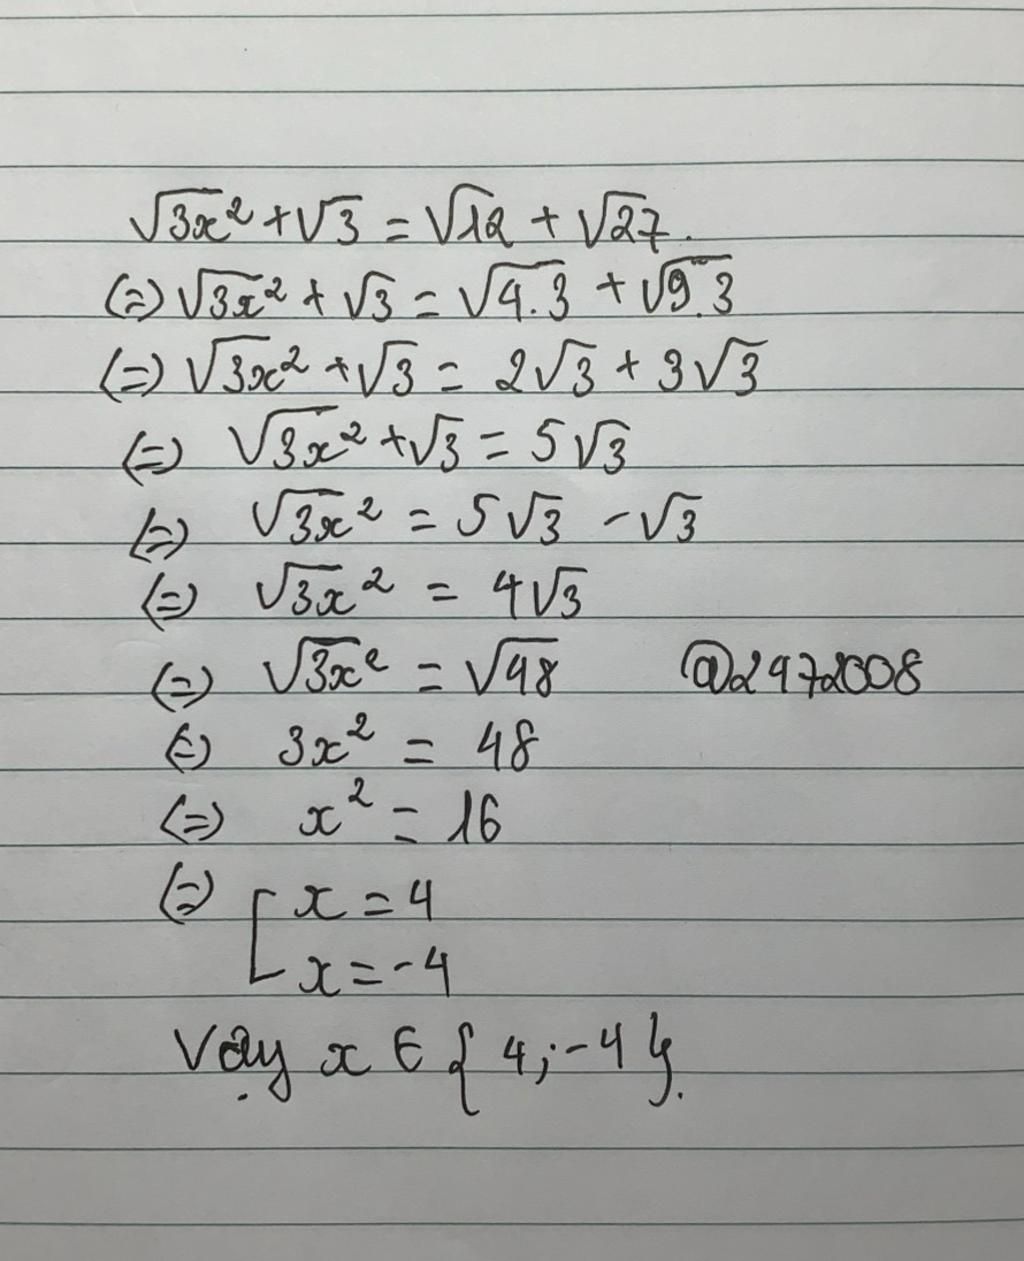 √3x² + √3 = √12 + √27.
(=) √3x² + √3 = √4.3 + √9.3
(=) √3x² + √3 = 2√3 + 3√3
(=) √3x² + √3 = 5√3
(=) √3x² = 5√3 - √3
(=) √3x² = 4√3
(=) √3x² = √48 @2972008
(=) 3x² = 48
(=) x² = 16
(=) [ x = 4
x = -4
Vậy x ∈ { 4; -4 }.